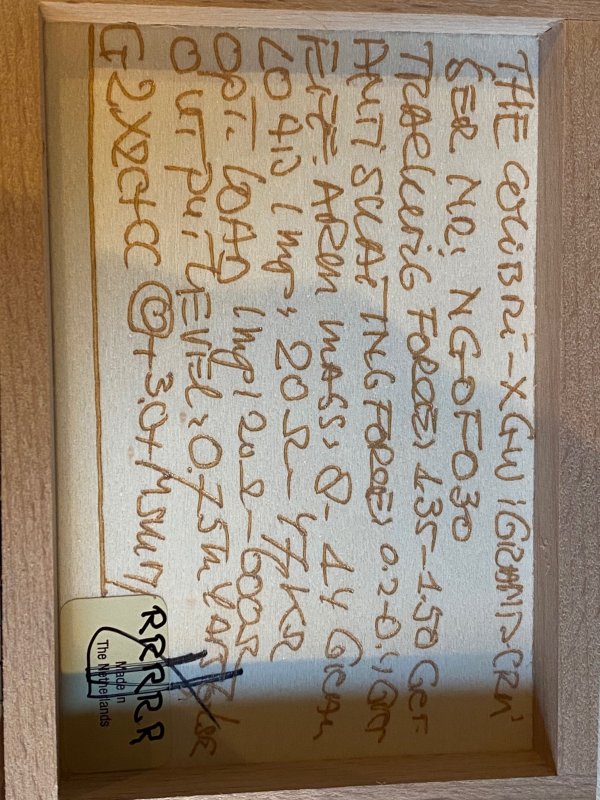 THE COLIBRI-XGW (GRAND CRU)
SER NR: NGOF030
TRACKING FORCE: 1.35-1.50 GR
ANTI SKATING FORCE: 0.2-0.4 GR
EFF: ARM MASS: 8-14 GRAM
LOAD IMP: 20Ω-47KΩ
OPT. LOAD IMP: 20Ω-600Ω
OUTPUT LEVEL: 0.75m
RRRRR
Made in
The Netherlands